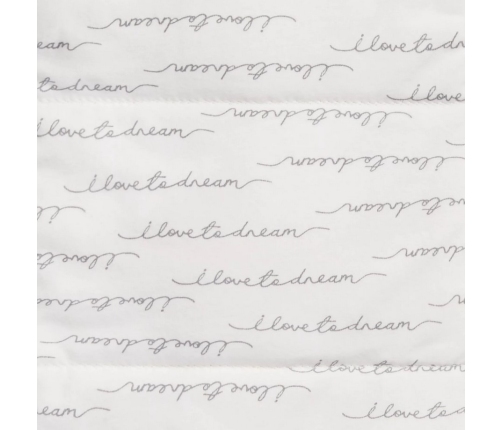 i love to dream
i love to d
eam
i love to dream
to dream
i love
i love to dream
i love to dream
i love to dream
i love to dream
i love to dream
i love to dream
i love to dream
i love to dream
i love to dream
i love to dream
i love to dream
i love to dream
i love to dream
i love to dream
eam
i love to d